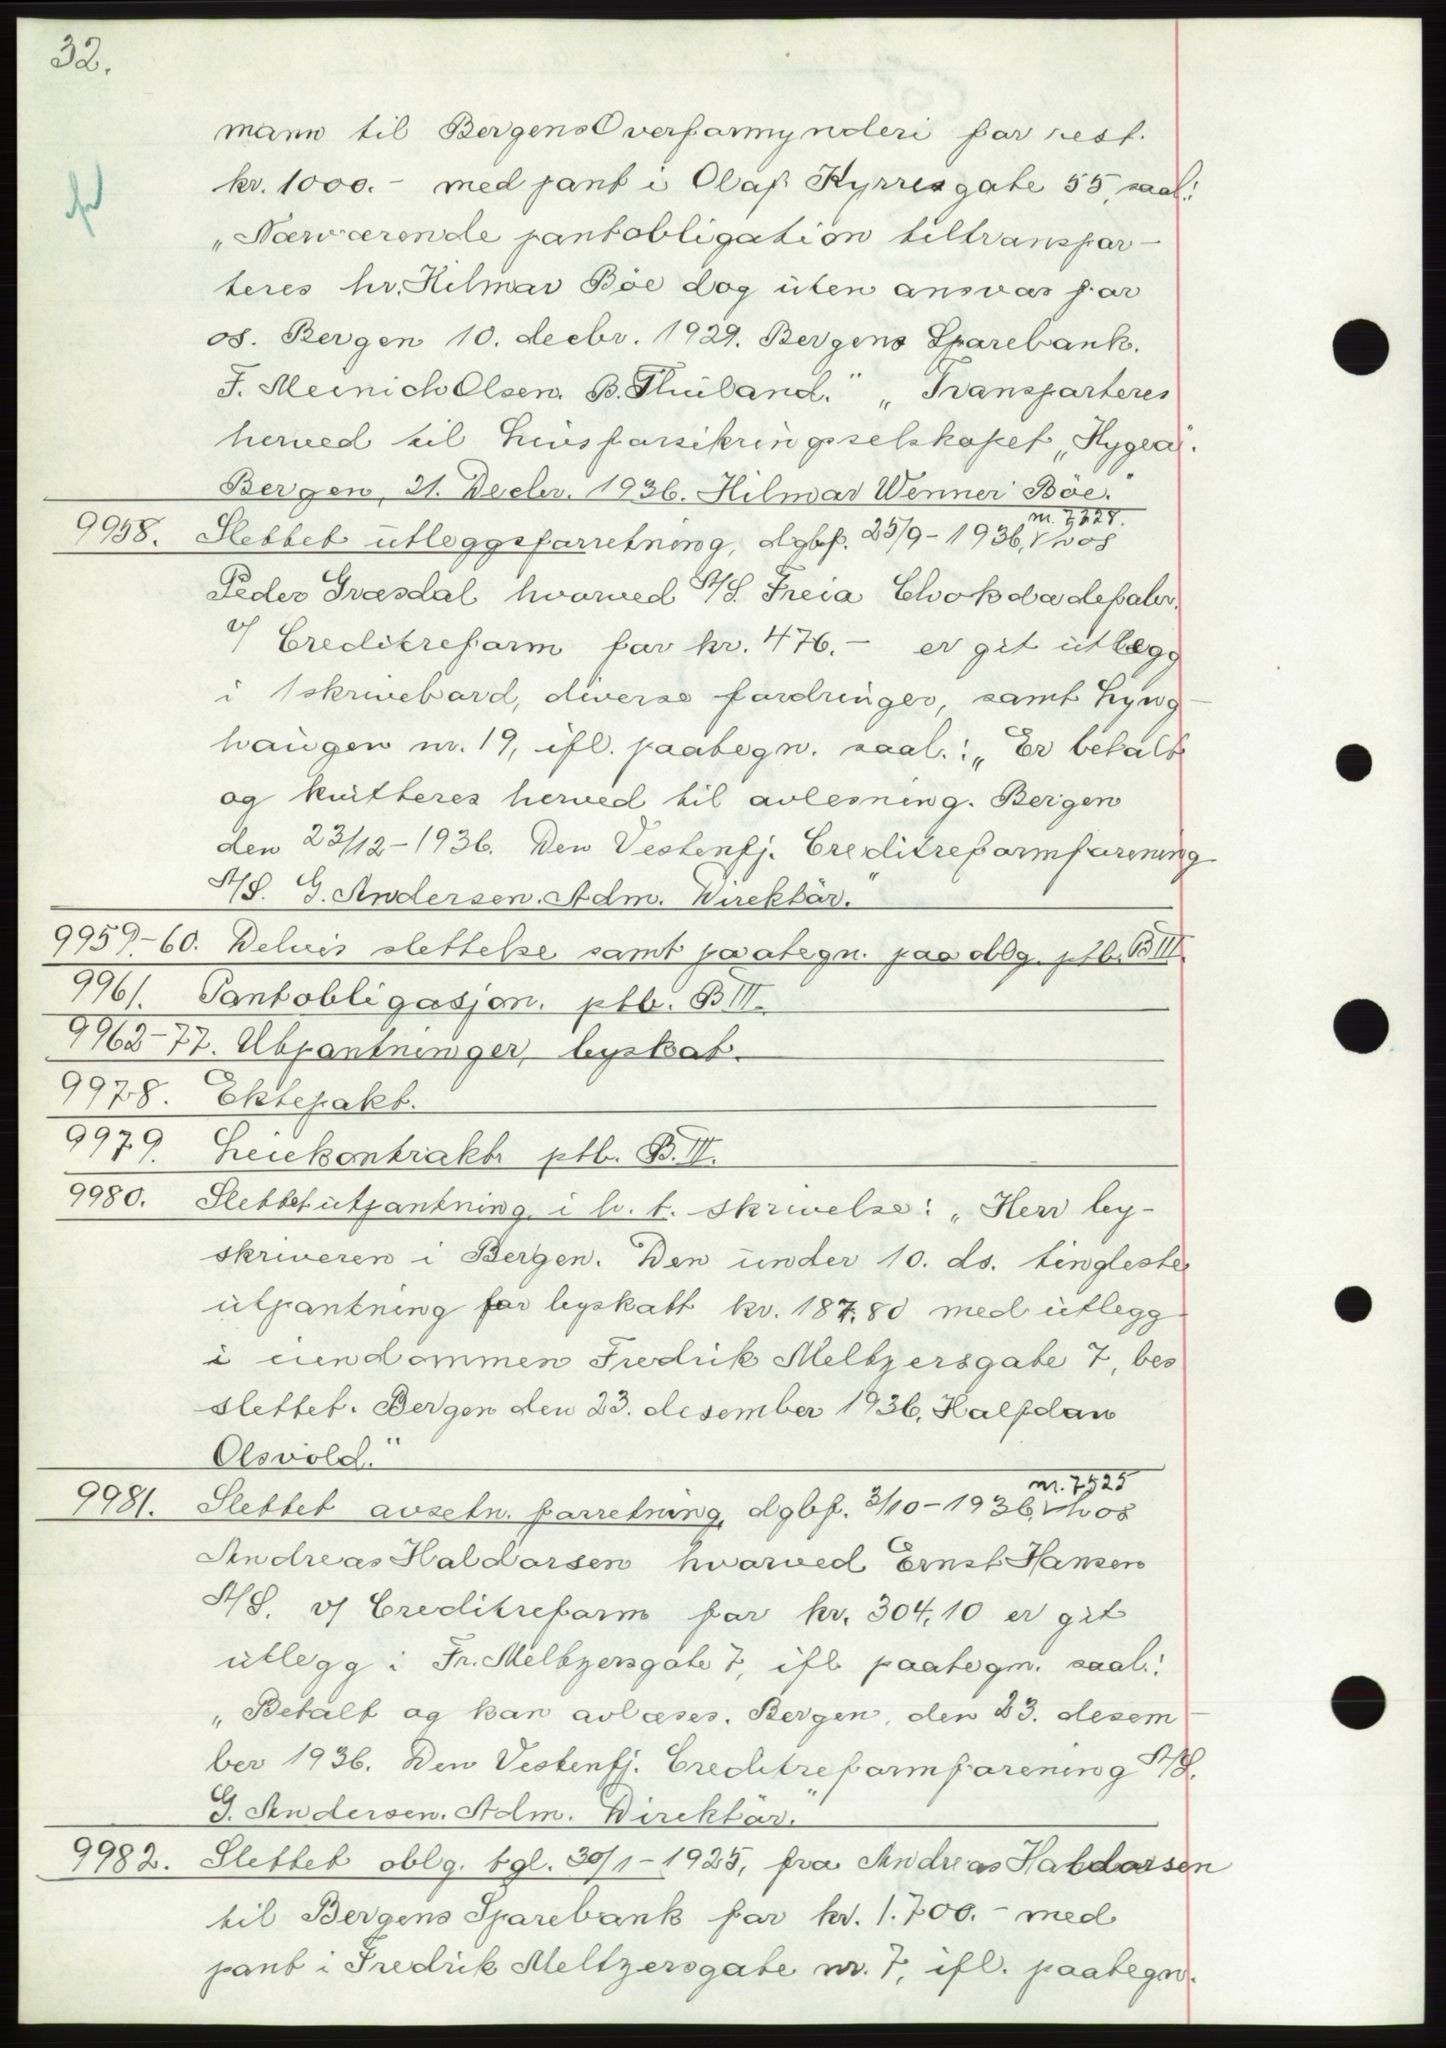 32.
mann til Bergens Overformynderi for rest.
kr. 1000.- med pant i Olaf Kyrresgate 55, saal:
"Nærværende pantobligation tiltranspor-
teres hr. Hilmar Böe dog uten ansvar for
os. Bergen 10. decbr. 1929. Bergens Sparebank.
F. Meinich Olsen. B. Thuland." "Transporteres
herved til Livsforsikringsselskapet "Hygea".
Bergen, 21. Decbr. 1936. Hilmar Wenner Böe."
9958. Slettet utleggsforretning, dgbf. 25/9-1936, nr. 7328. hos
Peder Græsdal hvorved A/S. Freia Chokoladefabr.
v/ Creditreform for kr. 476.- er git utlægg
i 1 skrivebord, diverse fordringer, samt Lyng-
haugen nr. 19, ifl. paategn. saal.: "Er betalt
og kvitteres herved til avlesning. Bergen
den 23/12-1936. Den Vestenfj. Creditreformforening
A/S. G. Andersen. Adm. Direktör."
9959-60. Delvis slettelse samt paategn. paa oblg. ptb. B III.
9961. Pantobligasjon. ptb. B III.
9962-77. Utpantninger, byskat.
9978. Ektepakt.
9979. Leiekontrakt ptb. B. III.
9980. Slettet utpantning i h. t. skrivelse: "Herr by-
skriveren i Bergen. Den under 10. ds. tingleste
utpantning for byskatt kr. 187.80 med utlegg
i eiendommen Fredrik Meltzersgate 7, bes
slettet. Bergen den 23. desember 1936, Halfdan
Olsvold."
9981. Slettet avsetn. forretning, dgbf. 3/10-1936, nr. 7525 hos
Andreas Haldorsen hvorved Ernst Hansen
A/S. v/ Creditreform for kr. 304,10 er git
utlegg i Fr. Meltzersgate 7, ifl paategn. saal.:
"Betalt og kan avlæses. Bergen, den 23. desem-
ber 1936. Den Vestenfj. Creditreformforening A/S.
G. Andersen. Adm. Direktör."
9982. Slettet oblg. tgl. 30/1-1925, fra Andreas Haldorsen
til Bergens Sparebank for kr. 1.700.- med
pant i Fredrik Meltzersgate nr. 7, ifl. paategn.